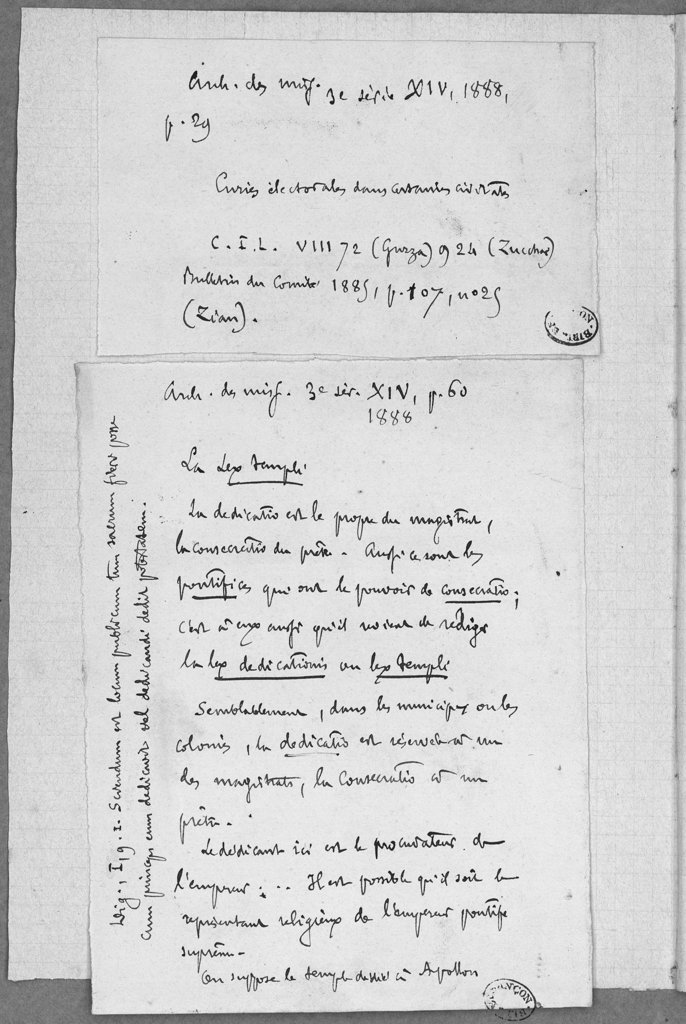 Arch. des miss. 3e série XIV, 1888,
p. 29
Curies électorales dans certaines civitates
C. I. L. VIII 72 (Gurza) 924 (Zucchar)
Bulletin du Comité 1885, p. 107, no 25
(Zian).
BIBL.
Arch. des miss. 3e sér. XIV, p. 60
1888
La Lex templi
La dedicatio est le propre du magistrat,
la consecratio du prêtre. Aussi ce sont les
pontifices qui ont le pouvoir de consecratio;
c'est à eux aussi qu'il revient de rédiger
la lex dedicationis ou lex templi
Semblablement, dans les municipes ou les
colonies, la dedicatio est réservée à un
des magistrats, la Consecratio à un
prêtre.
Le dédicant ici est le procurateur de
l'empereur; .. Il est possible qu'il soit le
représentant religieux de l'empereur pontife
suprême.
On suppose le temple dédié à Apollon
BESANÇON
Dig., I, 9. 2. Sciendum est locum publicum tum sacrum fieri posse
cum princeps eum dedicavit vel dedicandi dedit potestatem.